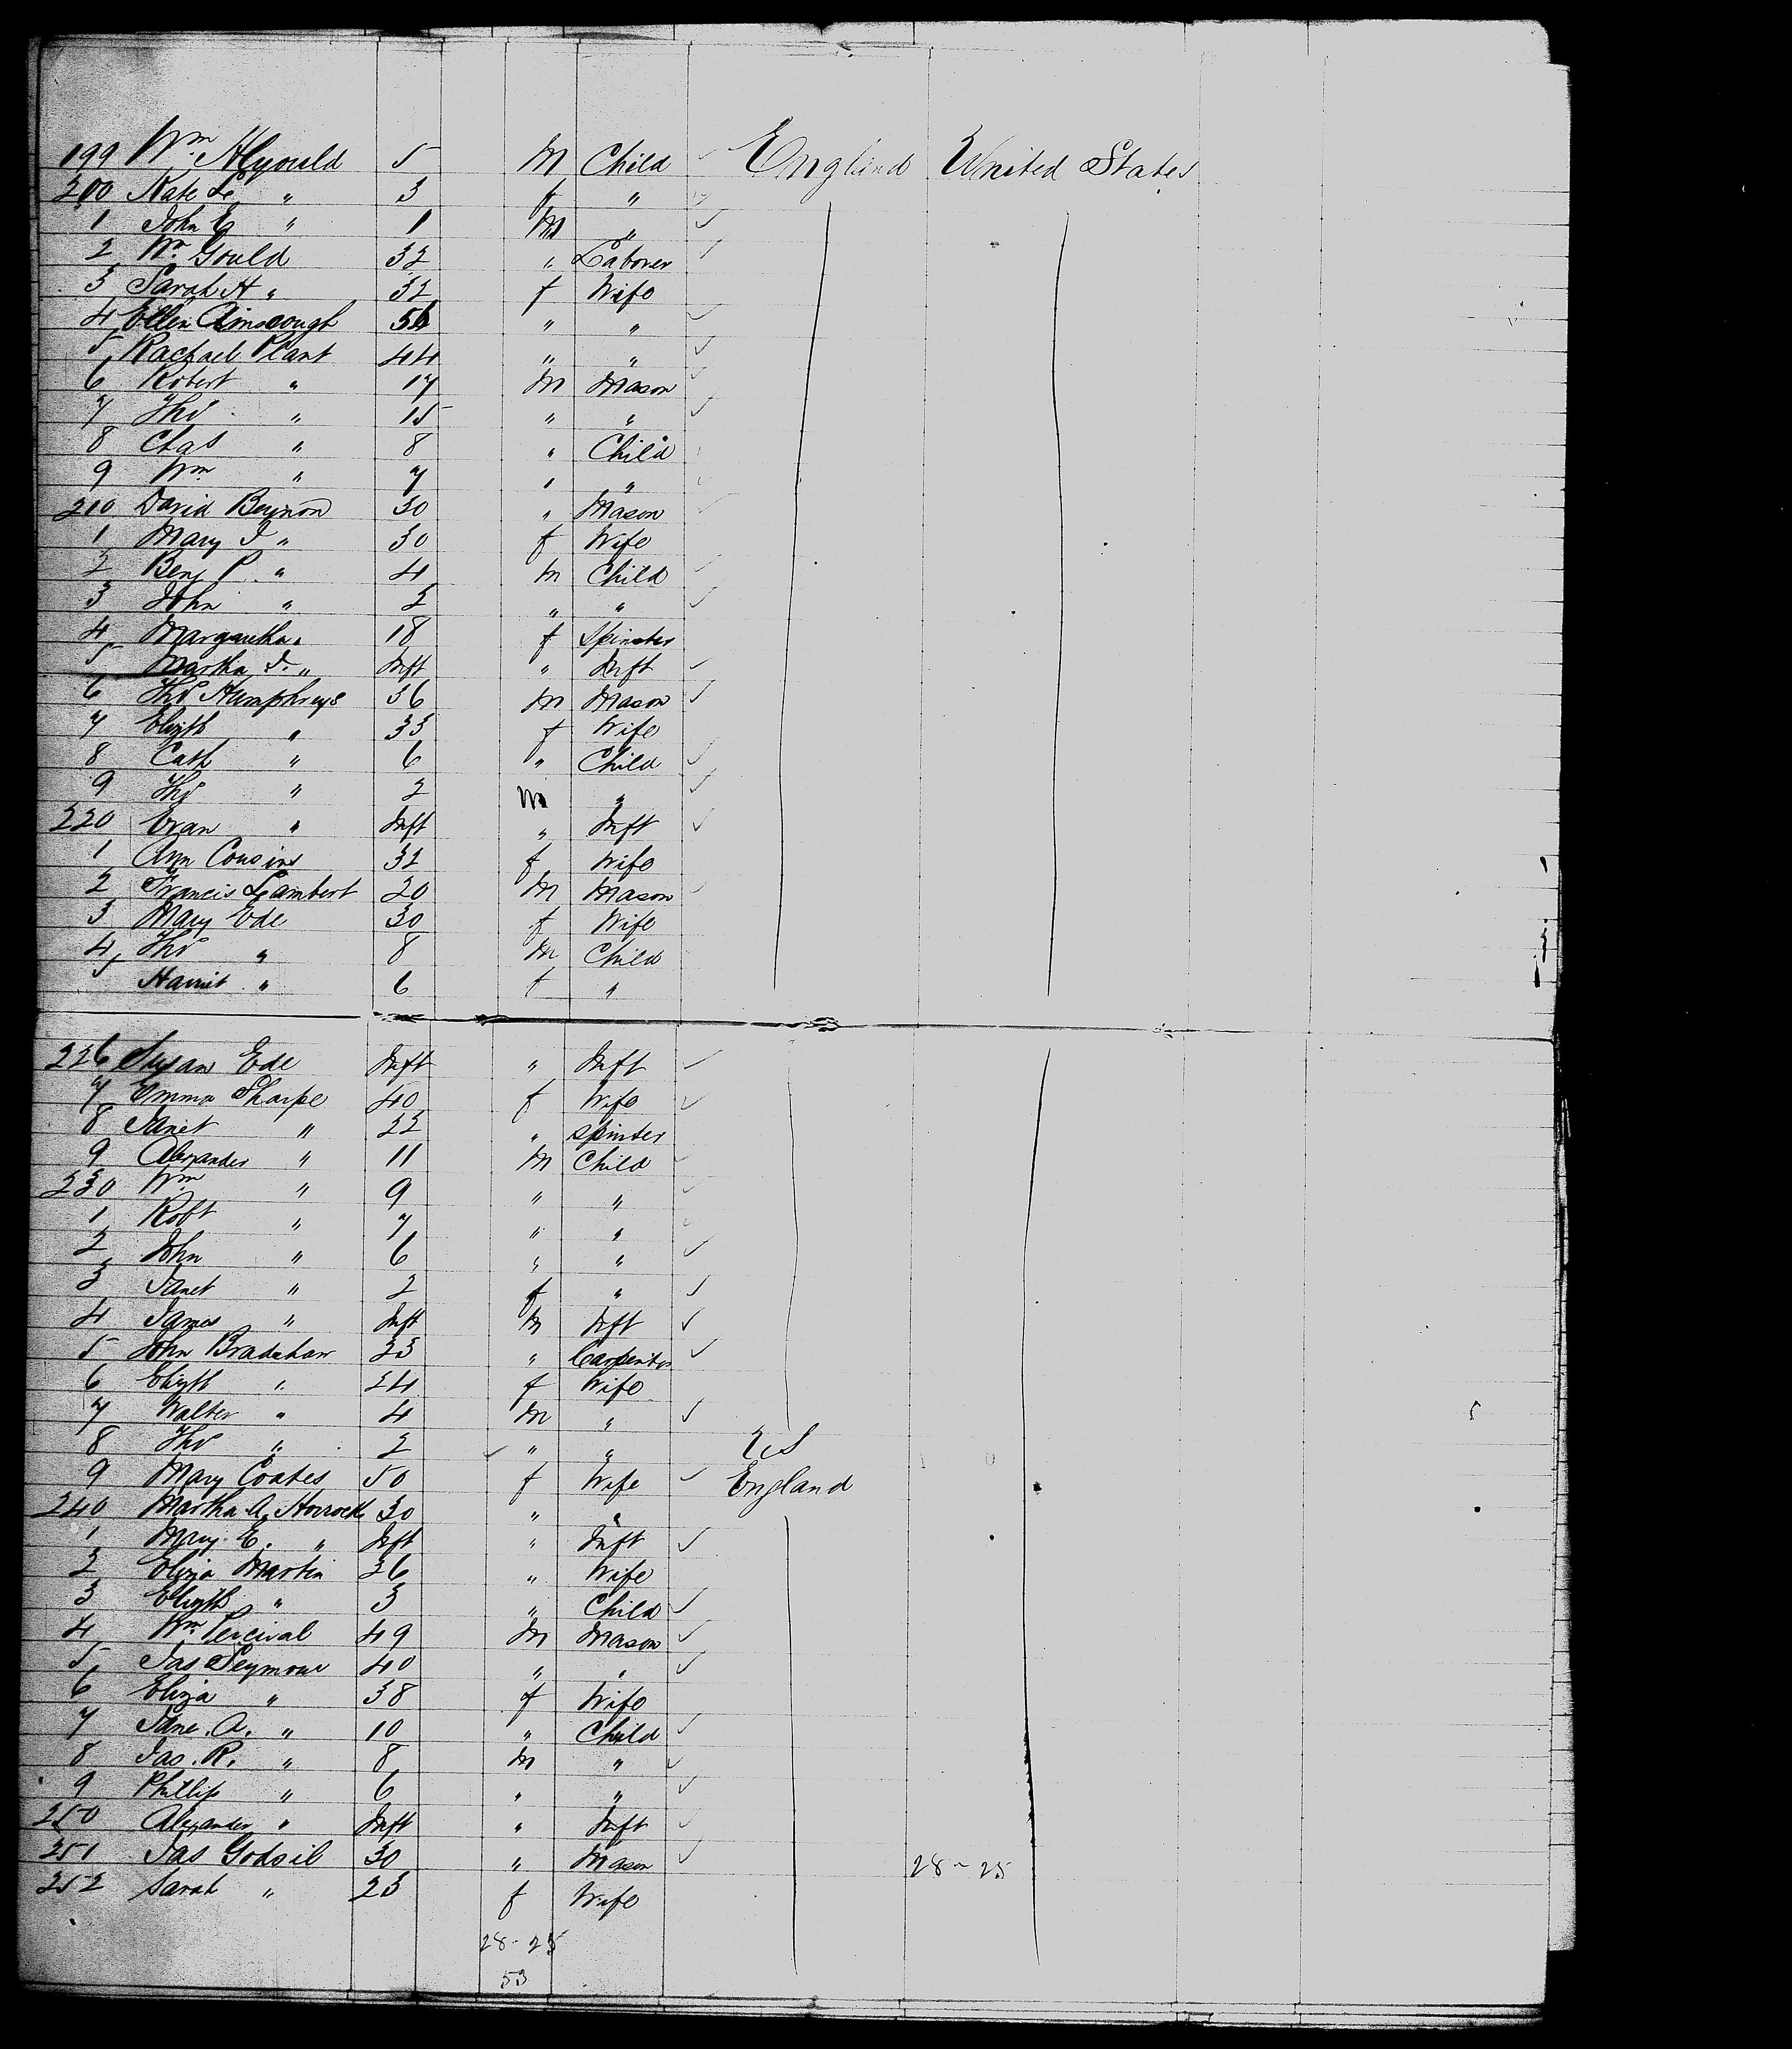 199 Wm H Gould 5 M Child England United States
200 Kate L " 3 f "
1 John E " 1 M "
2 Wm Gould 32 " Laborer
3 Sarah H " 32 f Wife
4 Ellen Ainscough 56 " "
5 Rachael Plant 44 " "
6 Robert " 17 M Mason
7 Thos " 15 " "
8 Chas " 8 " Child
9 Wm " 7 " "
210 David Beynon 30 " Mason
1 Mary J " 30 f Wife
2 Benj P. " 4 M Child
3 John " 2 " "
4 " 18 f Spinster
5 Martha J. " Inft " Inft
6 Thos Humphreys 36 M Mason
7 Elizth " 33 f Wife
8 Cath " 6 " Child
9 Thos " 2 M "
220 Evan " Inft " Inft
1 Ann Cousins 32 f Wife
2 Francis Lambert 20 M Mason
3 Mary Ede 30 f Wife
4 Thos " 8 M Child
5 Harriet " 6 f "
226 Susan Ede Inft " Inft
7 Emma Sharpe 40 f Wife
8 Janet " 22 " Spinster
9 Alexander " 11 M Child
230 Wm " 9 " "
1 Robt " 7 " "
2 John " 6 " "
3 Janet " 2 f "
4 James " Inft M Inft
5 John Bradshaw 23 " Carpenter
6 Elizth " 24 f Wife
7 Walter " 4 M "
8 Thos " 2 " " U S
9 Mary Coates 50 f Wife England
240 Martha A. Horrock 30 " "
1 Mary E. " Inft " Inft
2 Eliza Martin 26 " Wife
3 Elizth " 3 " Child
4 Wm Percival 49 M Mason
5 Jas Seymour 40 " "
6 Eliza " 38 f Wife
7 Jane. A. " 10 " Child
8 Jas. R. " 8 M "
9 Phillip " 6 " "
250 Alexander " Inft " Inft
251 Jas Godsil 30 " Mason 28-25
252 Sarah " 23 f Wife
28-25
53